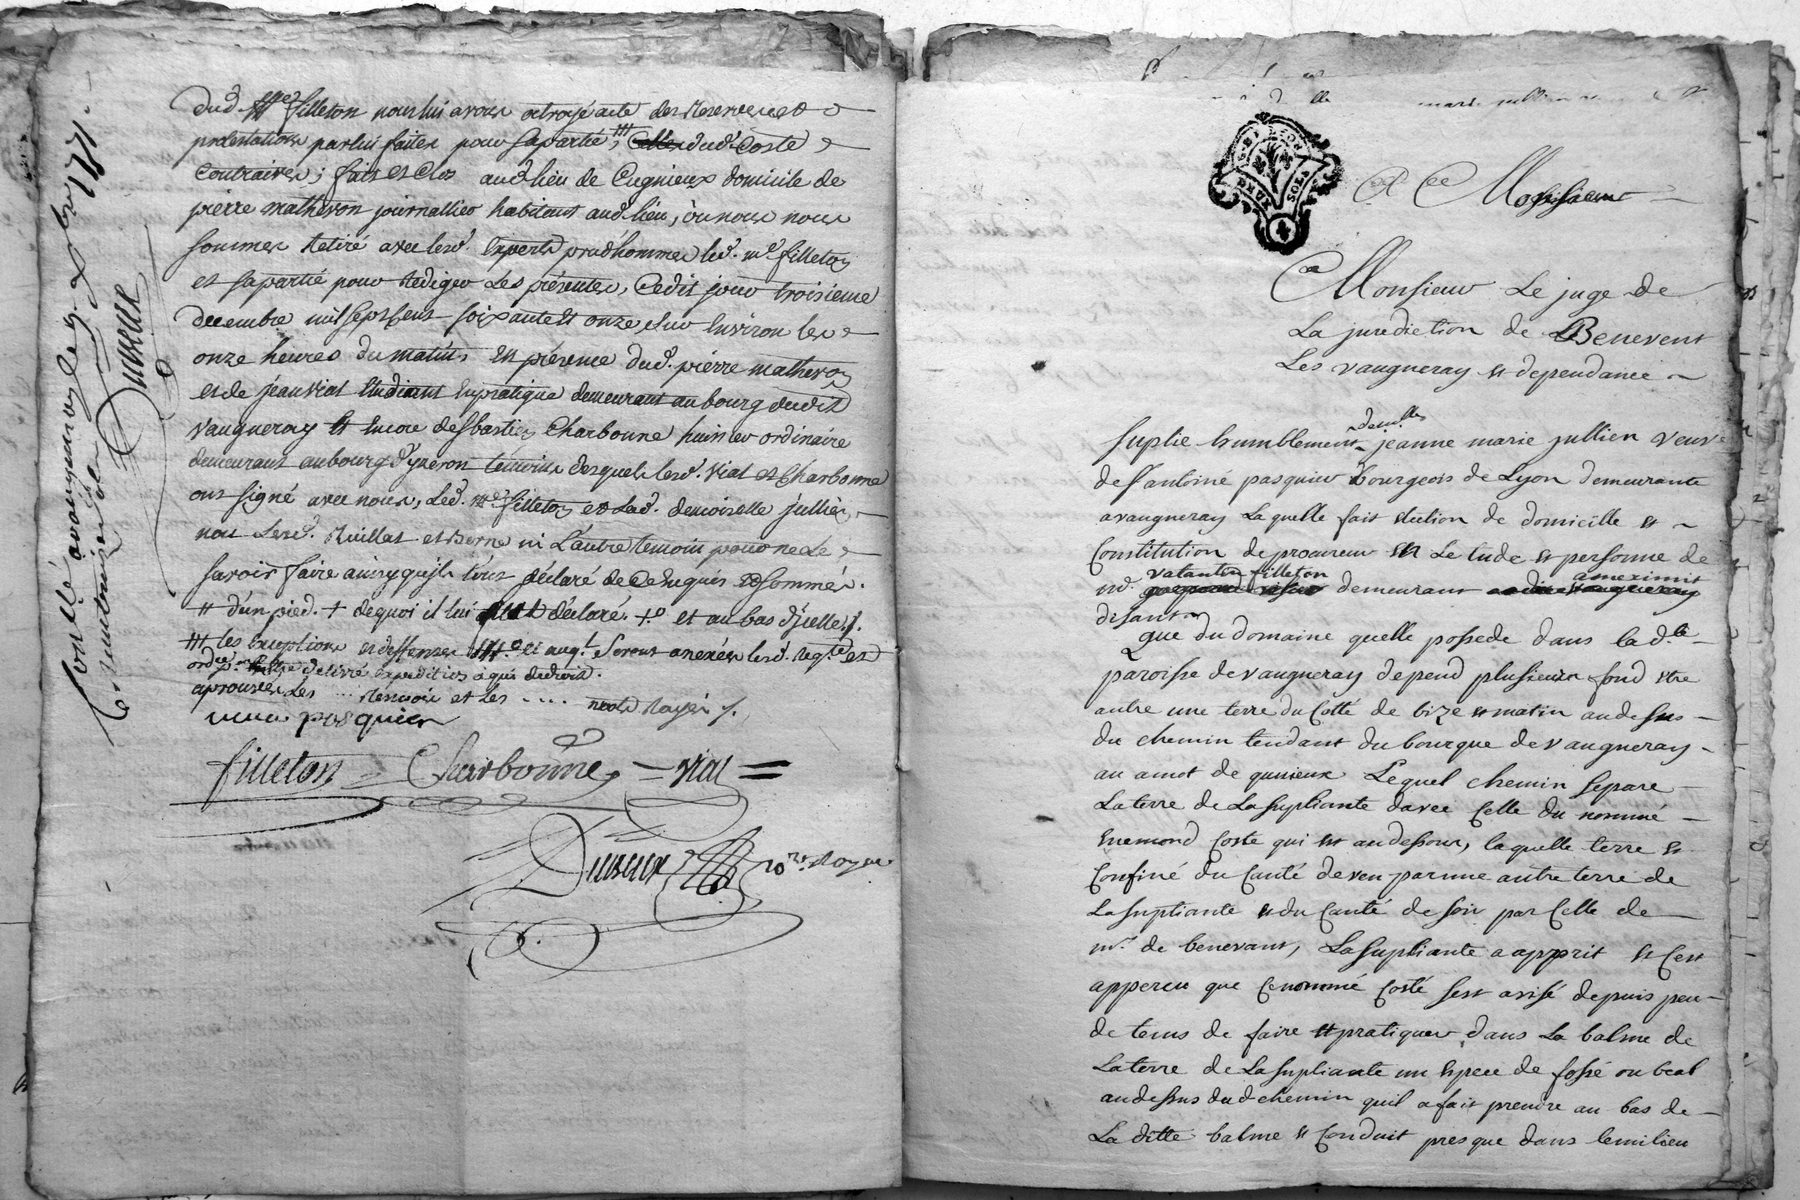 dud. me filleton nous lui avons octroyé acte des Reserves et
protestations par lui faites pour sa partie, ttt Celles dud. Coste
Contraires; fait et Clos aud. lieu de Cugnieux domicile de
pierre matheron journallier habitant aud. lieu, ou nous nous
sommes Retiré avec lesd. Experts prud'hommes led. me filleton
et sa partie pour Rediger Les présentes, Cedit jour troisieme
decembre mil sept Cent soixante et onze sur Environ les
onze heures du matin, En présence dud. pierre matheron
et de jean vial Etudiant En pratique demeurant au bourg dudit
vaugneray et Encore de sbastien Charbonne huissier ordinaire
demeurant au bourg d'yzeron temoins desquels lesd. vial et Charbonne
ont signé avec nous, Led. me filleton et Lad. demoiselle jullien,
non Lesd. Ruillat et Berne ni L'autre temoin pour ne Le
savoir faire ainsy qu'ils l'ont déclaré de Ce Enquis et sommés.
# d'un pied. + de quoi il lui déclaré. +o et au bas d'icelle./.
ttt les Exceptions et deffenses seront anexés lesd. Reqte et
ordce. delivré Expedition a qui de droit.
aprouvés Les ... Renvoi et Les .... mots Rayés ./.
veuve pasquier
filleton Charbonne vial
Duvieux nore. Royal
Controllé a vaugneray le 9 xbre 1771.
Duvieux
A Monsieur
Monsieur Le juge de
La juridiction de Benevent
Les vaugneray et dependance
demlle
suplie humblement jeanne marie jullien veuve
de S antoine pasquier Bourgeois de Lyon demeurante
a vaugneray Laquelle fait Election de domicille et
Constitution de procureur En Letude et personne de
vatantin filleton amezimit
me. demeurant
disant
que du domaine quelle possede dans la de.
paroisse de vaugneray depend plusieurs fond Etre
autre une terre du Cotté de bize et matin au dessus
du chemin tendant du bourgue de vaugneray
au amot de quinieux Lequel chemin separe
La terre de La supliante davec Celle du nommé
Enemond Coste qui Est au dessous, laquelle terre Et
Confiné du Canté de ven par une autre terre de
La supliante et du Canté de soir par Celle de
mr. de benevant, La supliante a apprit et Cest
apperçu que Ce nommé Coste sest avisé depuis peu
de tems de faire et pratiquer dans La balme de
La terre de La supliante un Espece de fossé ou beal
au dessus dud chemin quil a fait prendre au bas de
La ditte balme et Conduit presque dans le milieu